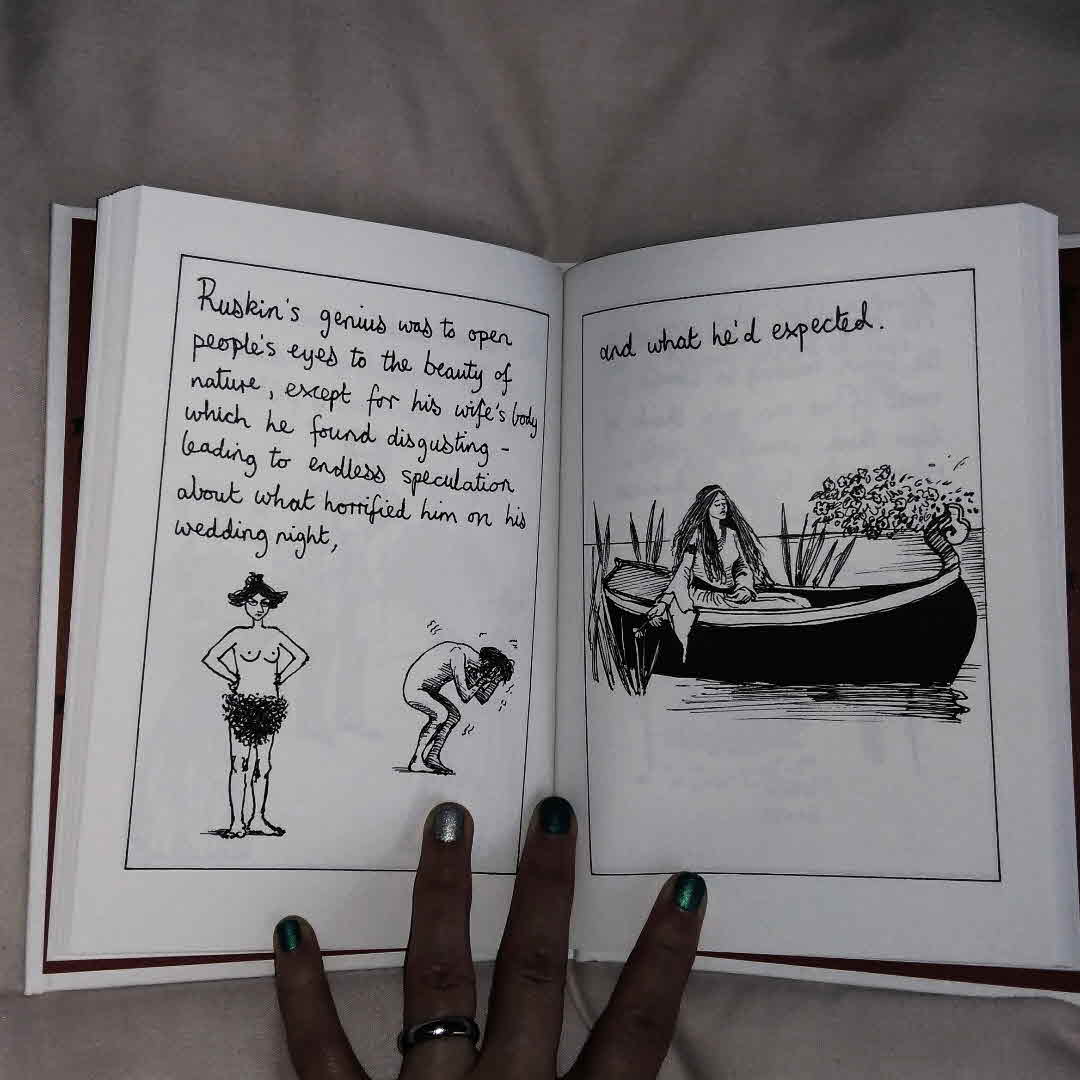 Ruskin's genius was to open
people's eyes to the beauty of
nature, except for his wife's body
which he found disgusting -
leading to endless speculation
about what horrified him on his
wedding night,
and what he'd expected.